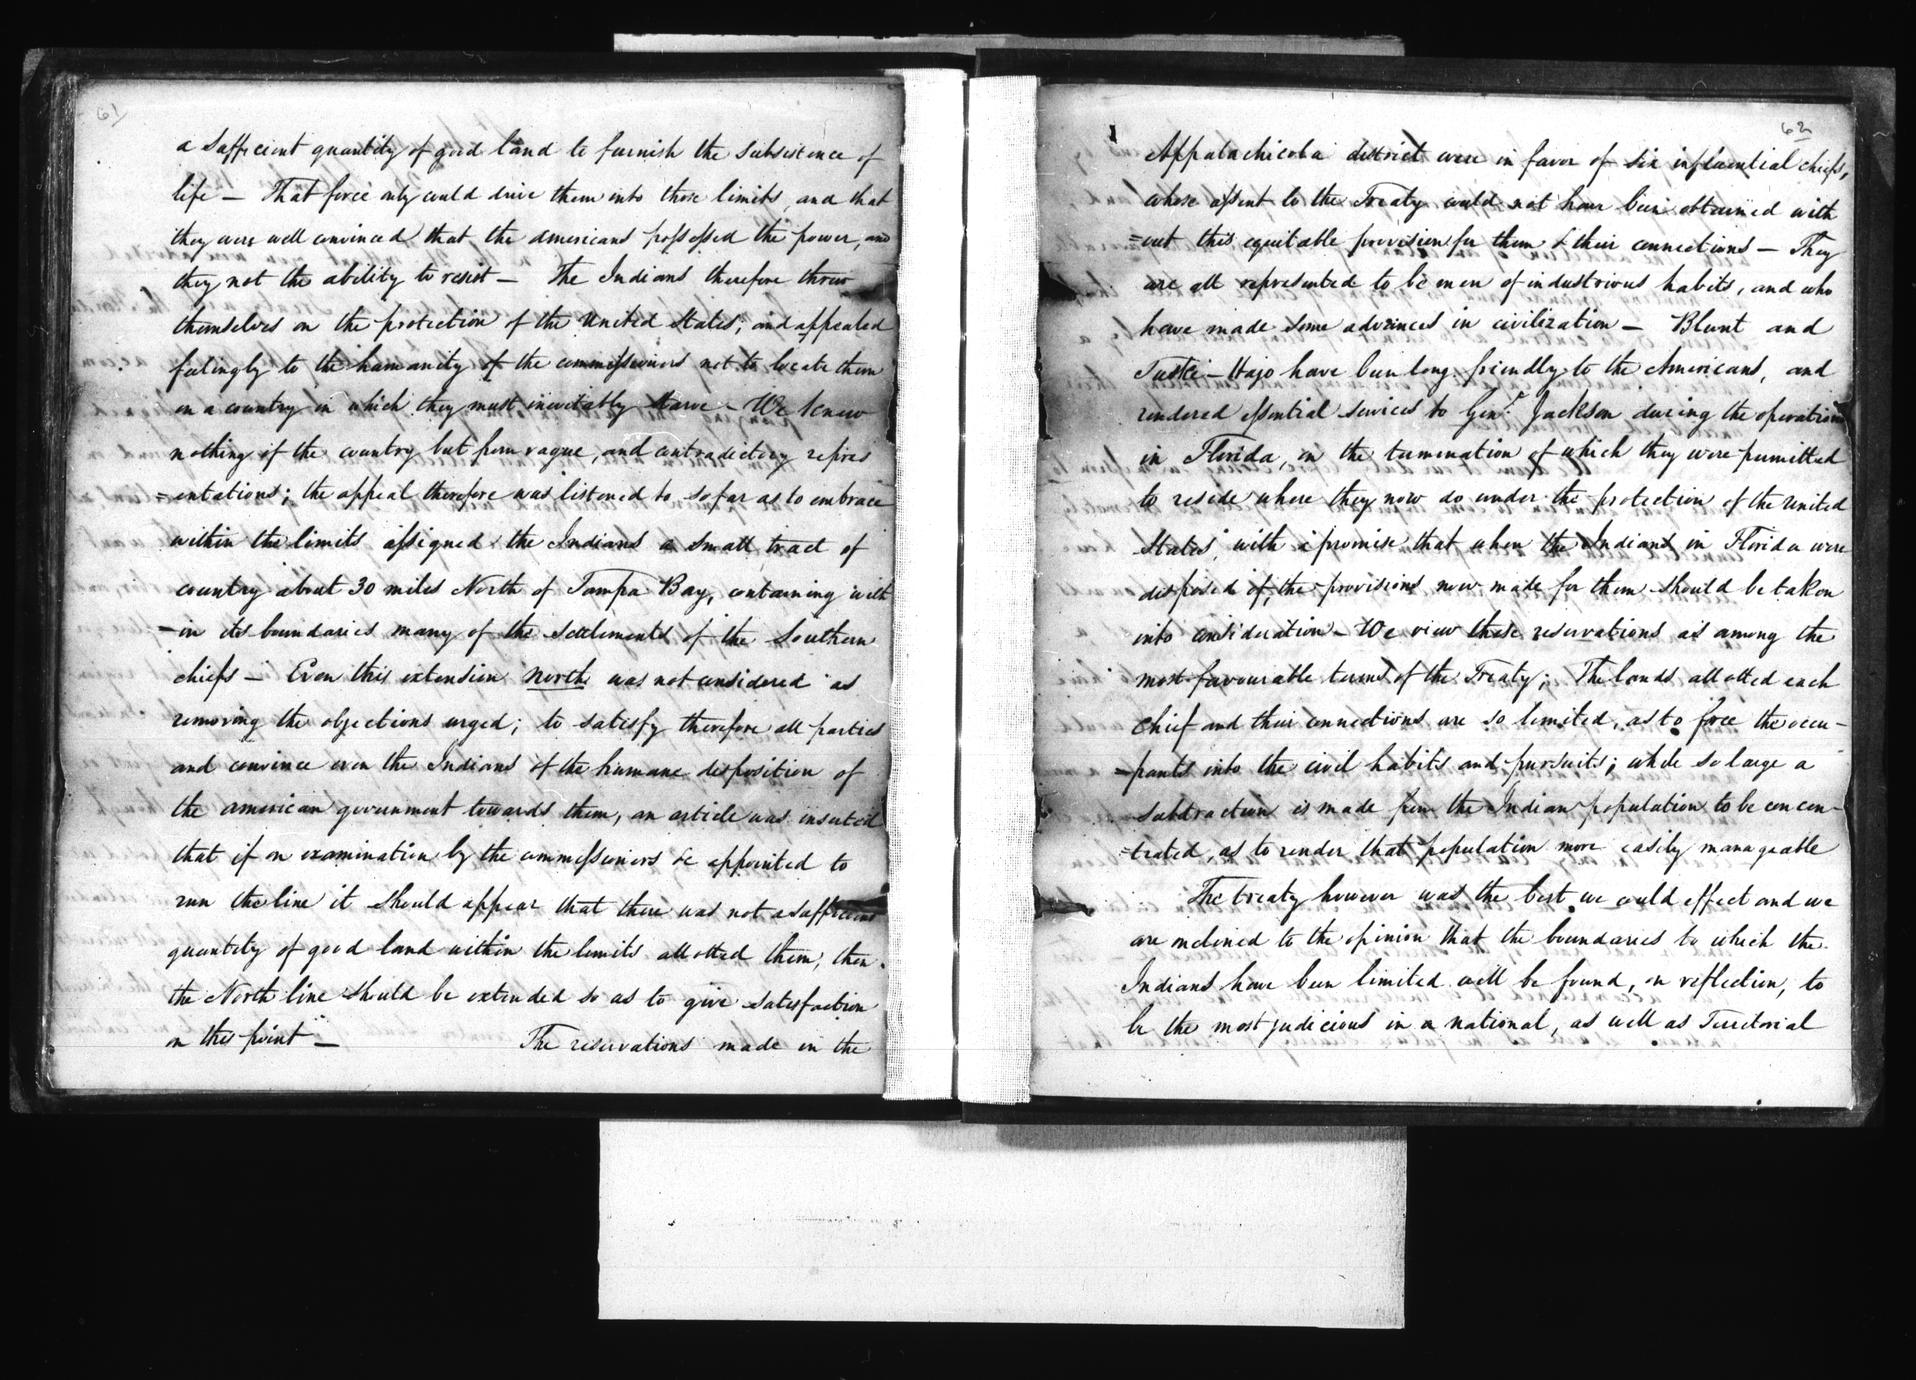 61
a sufficient quantity of good land to furnish the subsistence of
life — That force only could drive them into those limits, and that
they were well convinced that the americans possessed the power, and
they not the ability to resist — The Indians therefore threw
themselves on the protection of the United States, and appealed
feelingly to the humanity of the commissioners not to locate them
in a country in which they must inevitably starve — We knew
nothing of the country but from vague, and contradictory repres
=entations; the appeal therefore was listened to so far as to embrace
within the limits assigned the Indians a small tract of
country about 30 miles North of Tampa Bay, containing with
-in its boundaries many of the settlements of the Southern
chiefs — Even this extension north was not considered as
removing the objections urged; to satisfy therefore all parties
and convince even the Indians of the humane disposition of
the american government towards them, an article was inserted
that if on examination by the commissioners &c appointed to
run the line it should appear that there was not a sufficient
quantity of good land within the limits allotted them, then
the North line should be extended so as to give satisfaction
on this point — The reservations made in the
62
Appalachicola district were in favor of six influential chiefs,
whose assent to the Treaty could not have been obtained with
=out this equitable provision for them & their connections — They
are all represented to be men of industrious habits, and who
have made some advances in civilization — Blunt and
Tuski-Hajo have been long friendly to the Americans, and
rendered essential services to Genl. Jackson during the operations
in Florida, on the termination of which they were permitted
to reside where they now do under the protection of the United
States, with a promise that when the Indians in Florida were
disposed of, the provisions now made for them should be taken
into consideration — We view these reservations as among the
most favourable terms of the Treaty; The lands allotted each
chief and their connections are so limited, as to force the occu-
-pants into the civil habits and pursuits; while so large a
subtraction is made from the Indian population to be concen-
=trated, as to render that population more easily manageable
The treaty however was the best we could effect and we
are inclined to the opinion that the boundaries to which the
Indians have been limited will be found, on reflection, to
be the most judicious in a national, as well as Territorial